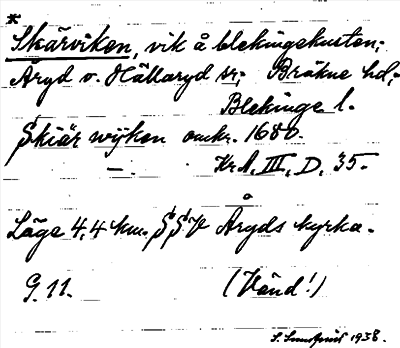 *
Skärviken, vik å blekingekusten;
Åryd o. Hällaryd sr; Bräkne hd;
Blekinge l.
Skiär wijken omkr. 1680.
Kr.A. III, D, 35.
Läge 4,4 km. SSV Åryds kyrka.
G. 11. (Vänd!)
1938.